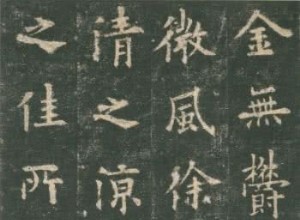 金無欝
微風徐
清之涼
之佳所